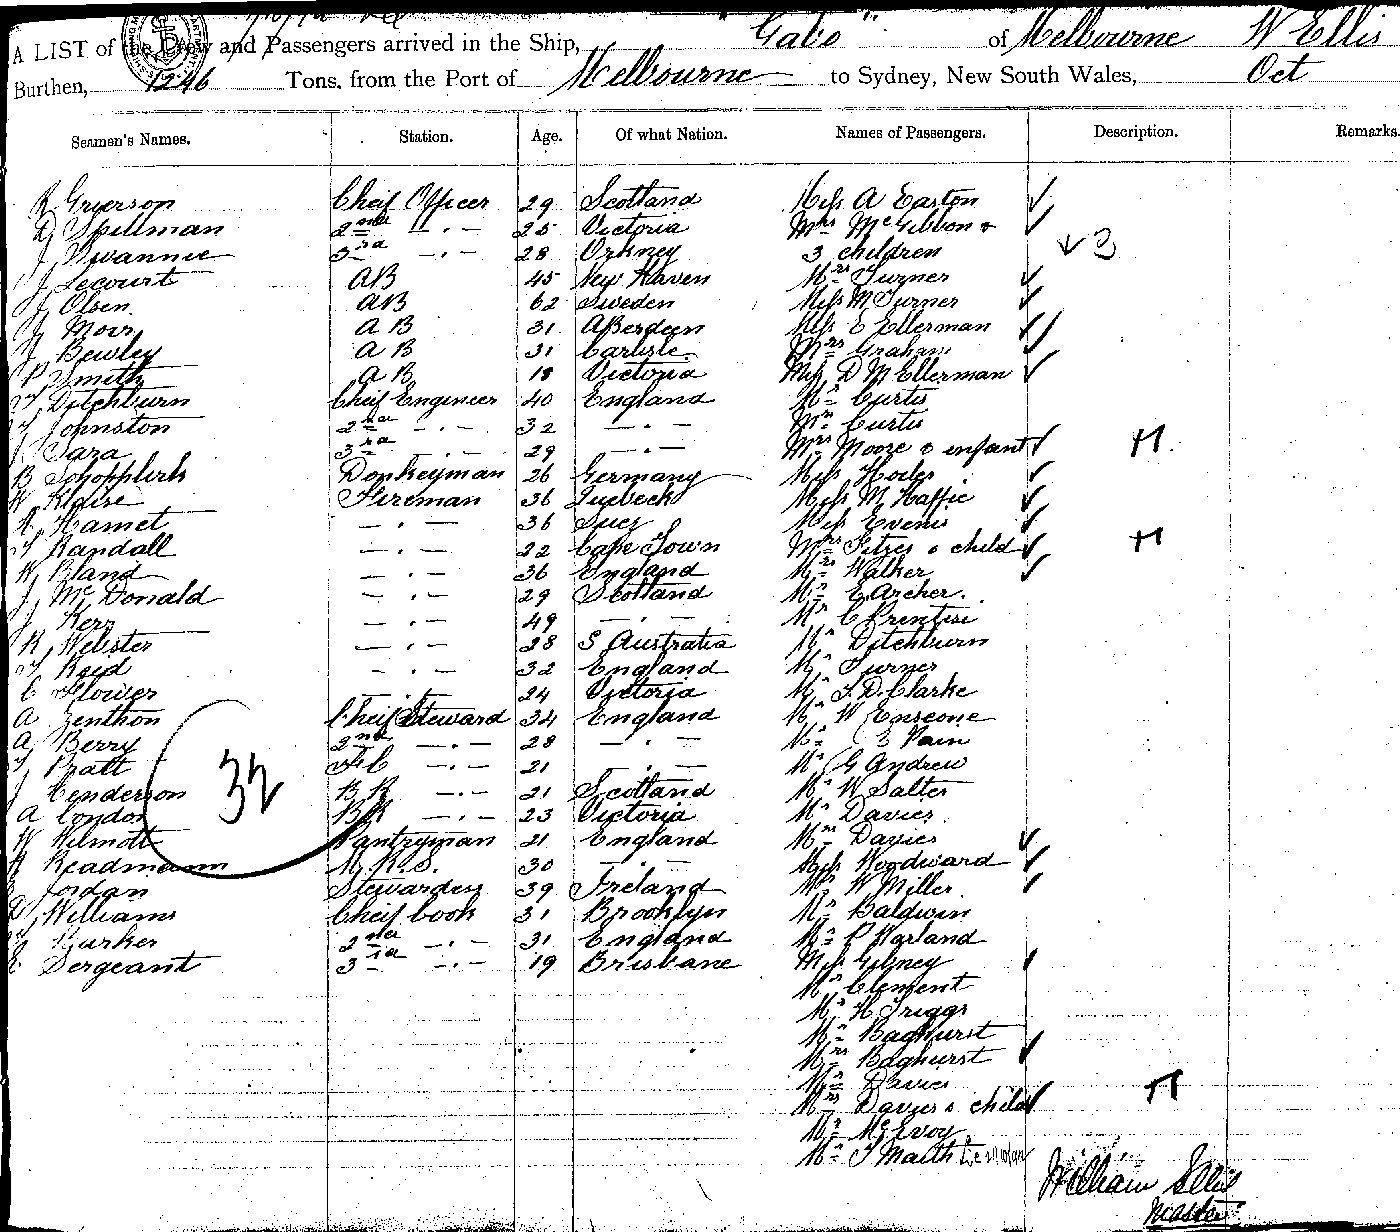 "Gabo" of Melbourne W Ellis
A LIST of the Crew and Passengers arrived in the Ship,
Burthen, 1246 Tons, from the Port of Melbourne to Sydney, New South Wales, Oct
Seamen's Names. Station. Age. Of what Nation. Names of Passengers. Description. Remarks.
R Grierson Cheif Officer 29 Scotland Miss A Easton
D Spillman 2nd —.— 25 Victoria Mrs McGibbon &
J Swannie 3rd —.— 28 Orkney 3 children 3
J Lecourt AB 45 New Haven Mrs Turner
J Olsen AB 62 Sweden Miss M Turner
J Moir AB 31 Aberdeen Miss E Ellerman
J Bewley AB 31 Carlisle Mrs Graham
P Smith AB 18 Victoria Miss D M Ellerman
T Ditchburn Cheif Engineer 40 England Mr Curtis
Johnston 2nd —.— 32 —.— Mr Curtis
J Sara 3rd —.— 29 —.— Mrs Moore & infant
B Donkeyman 26 Germany Miss
W Klaise Fireman 36 Luebeck Miss M Haffie
Hamet —.— 36 Suez Miss
T Randall —.— 22 Cape Town Mrs & child
W Bland —.— 36 England Mrs Walker
J McDonald —.— 29 Scotland Mr E Archer.
J Kerr —.— 49 —.— Mr C
R Webster —.— 28 S Australia Mr Ditchburn
T Reid —.— 32 England Mr Turner
C Flower —.— 24 Victoria Mr Clarke
A Zenthon Cheif Steward 34 England Mr W
A Berry 2nd —.— 28 —.— Mr E Pain
T Pratt —.— 21 —.— Mr G Andrew
J Henderson —.— 21 Scotland Mr W Salter
A London —.— 23 Victoria Mr Davies
W Wilmott Pantryman 21 England Mrs Davies
Readmann 30 —.— Miss Woodward
Jordan Stewardess 39 Ireland W Miller
D Williams Cheif Cook 31 Brooklyn Mr Baldwin
Burker 2nd —.— 31 England Mr P Warland
Sergeant 3rd —.— 19 Brisbane Miss Gibney
32
Mr Clement
Mr H Triggs
Mr Baghurst
Mrs Baghurst
Mr Davies
Mrs Davies & child
Mr McEvoy
Mr
William Ellis
Master